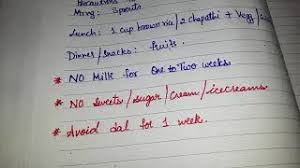 Morng: Sprouts
Lunch: 1 cup brown rice / 2 chapathi + Vegg /
Dinner / Snacks: fruits.
* NO Milk for One to Two weeks
* NO Sweets / sugar / cream / icecreams
* Avoid dal for 1 week.